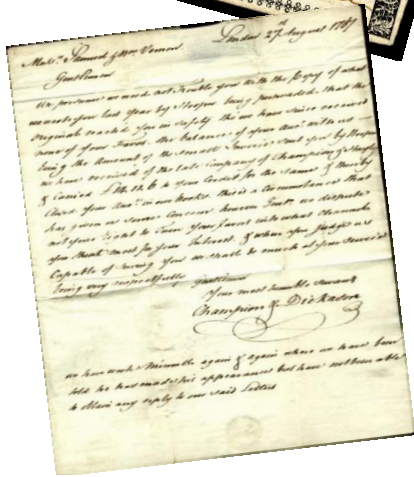 London 27th August 1787
Messrs. Samuel & Wm Vernon
Gentlemen
We presume we need not trouble you with the Copy of what
we wrote you last year by Sloops being perswaded that the
Originals reached you in safety tho we have since received
none of your Favors. the balance of your Acct. with us
being the Amount of the Smart Invoice sent you by
we have received of the late Company of Champion &
& Carried to your Credit for the same & thereby
Closed your Acct. in our Books. this is a Circumstance that
has given us some Concern however Gentn. we dispute
not your right to turn your favors into what Channels
you think most for your Interest, & when you judge us
Capable of serving you we shall be much at your Service
being very respectfully Gentlemen
Your most humble Servants
Champion & Dickason
we have wrote Minville again & again where we have been
told he has made his appearance but have not been able
to obtain any reply to our said Letters